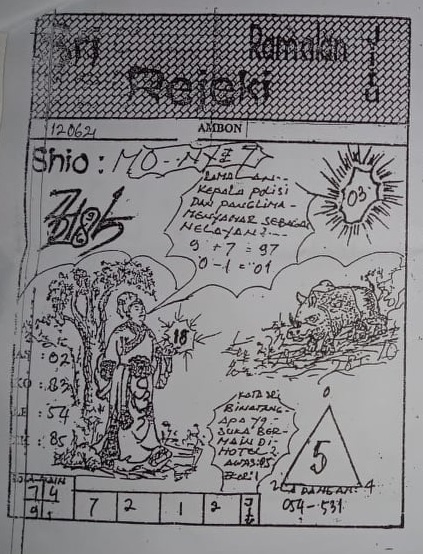 Sri
Ramalan
Jitu
Rejeki
AMBON
Shio : MO-NYET
RAMALAN--
KEPALA POLISI
DAN PANGLIMA-
MENYAMAR SEBAGAI
NELAYAN?--
9 + 7 = 97
0 - 1 = 01
03
18
AS : 02
KO : 83
: 54
: 85
KATA SRI
BINATANG-
APA YG-
SUKA BER-
MAIN DI-
HOTEL?
AWAS: 85
0
5
2
4
CADANGAN:
054 - 531
7 4
9
7 2 1 2
Jitu